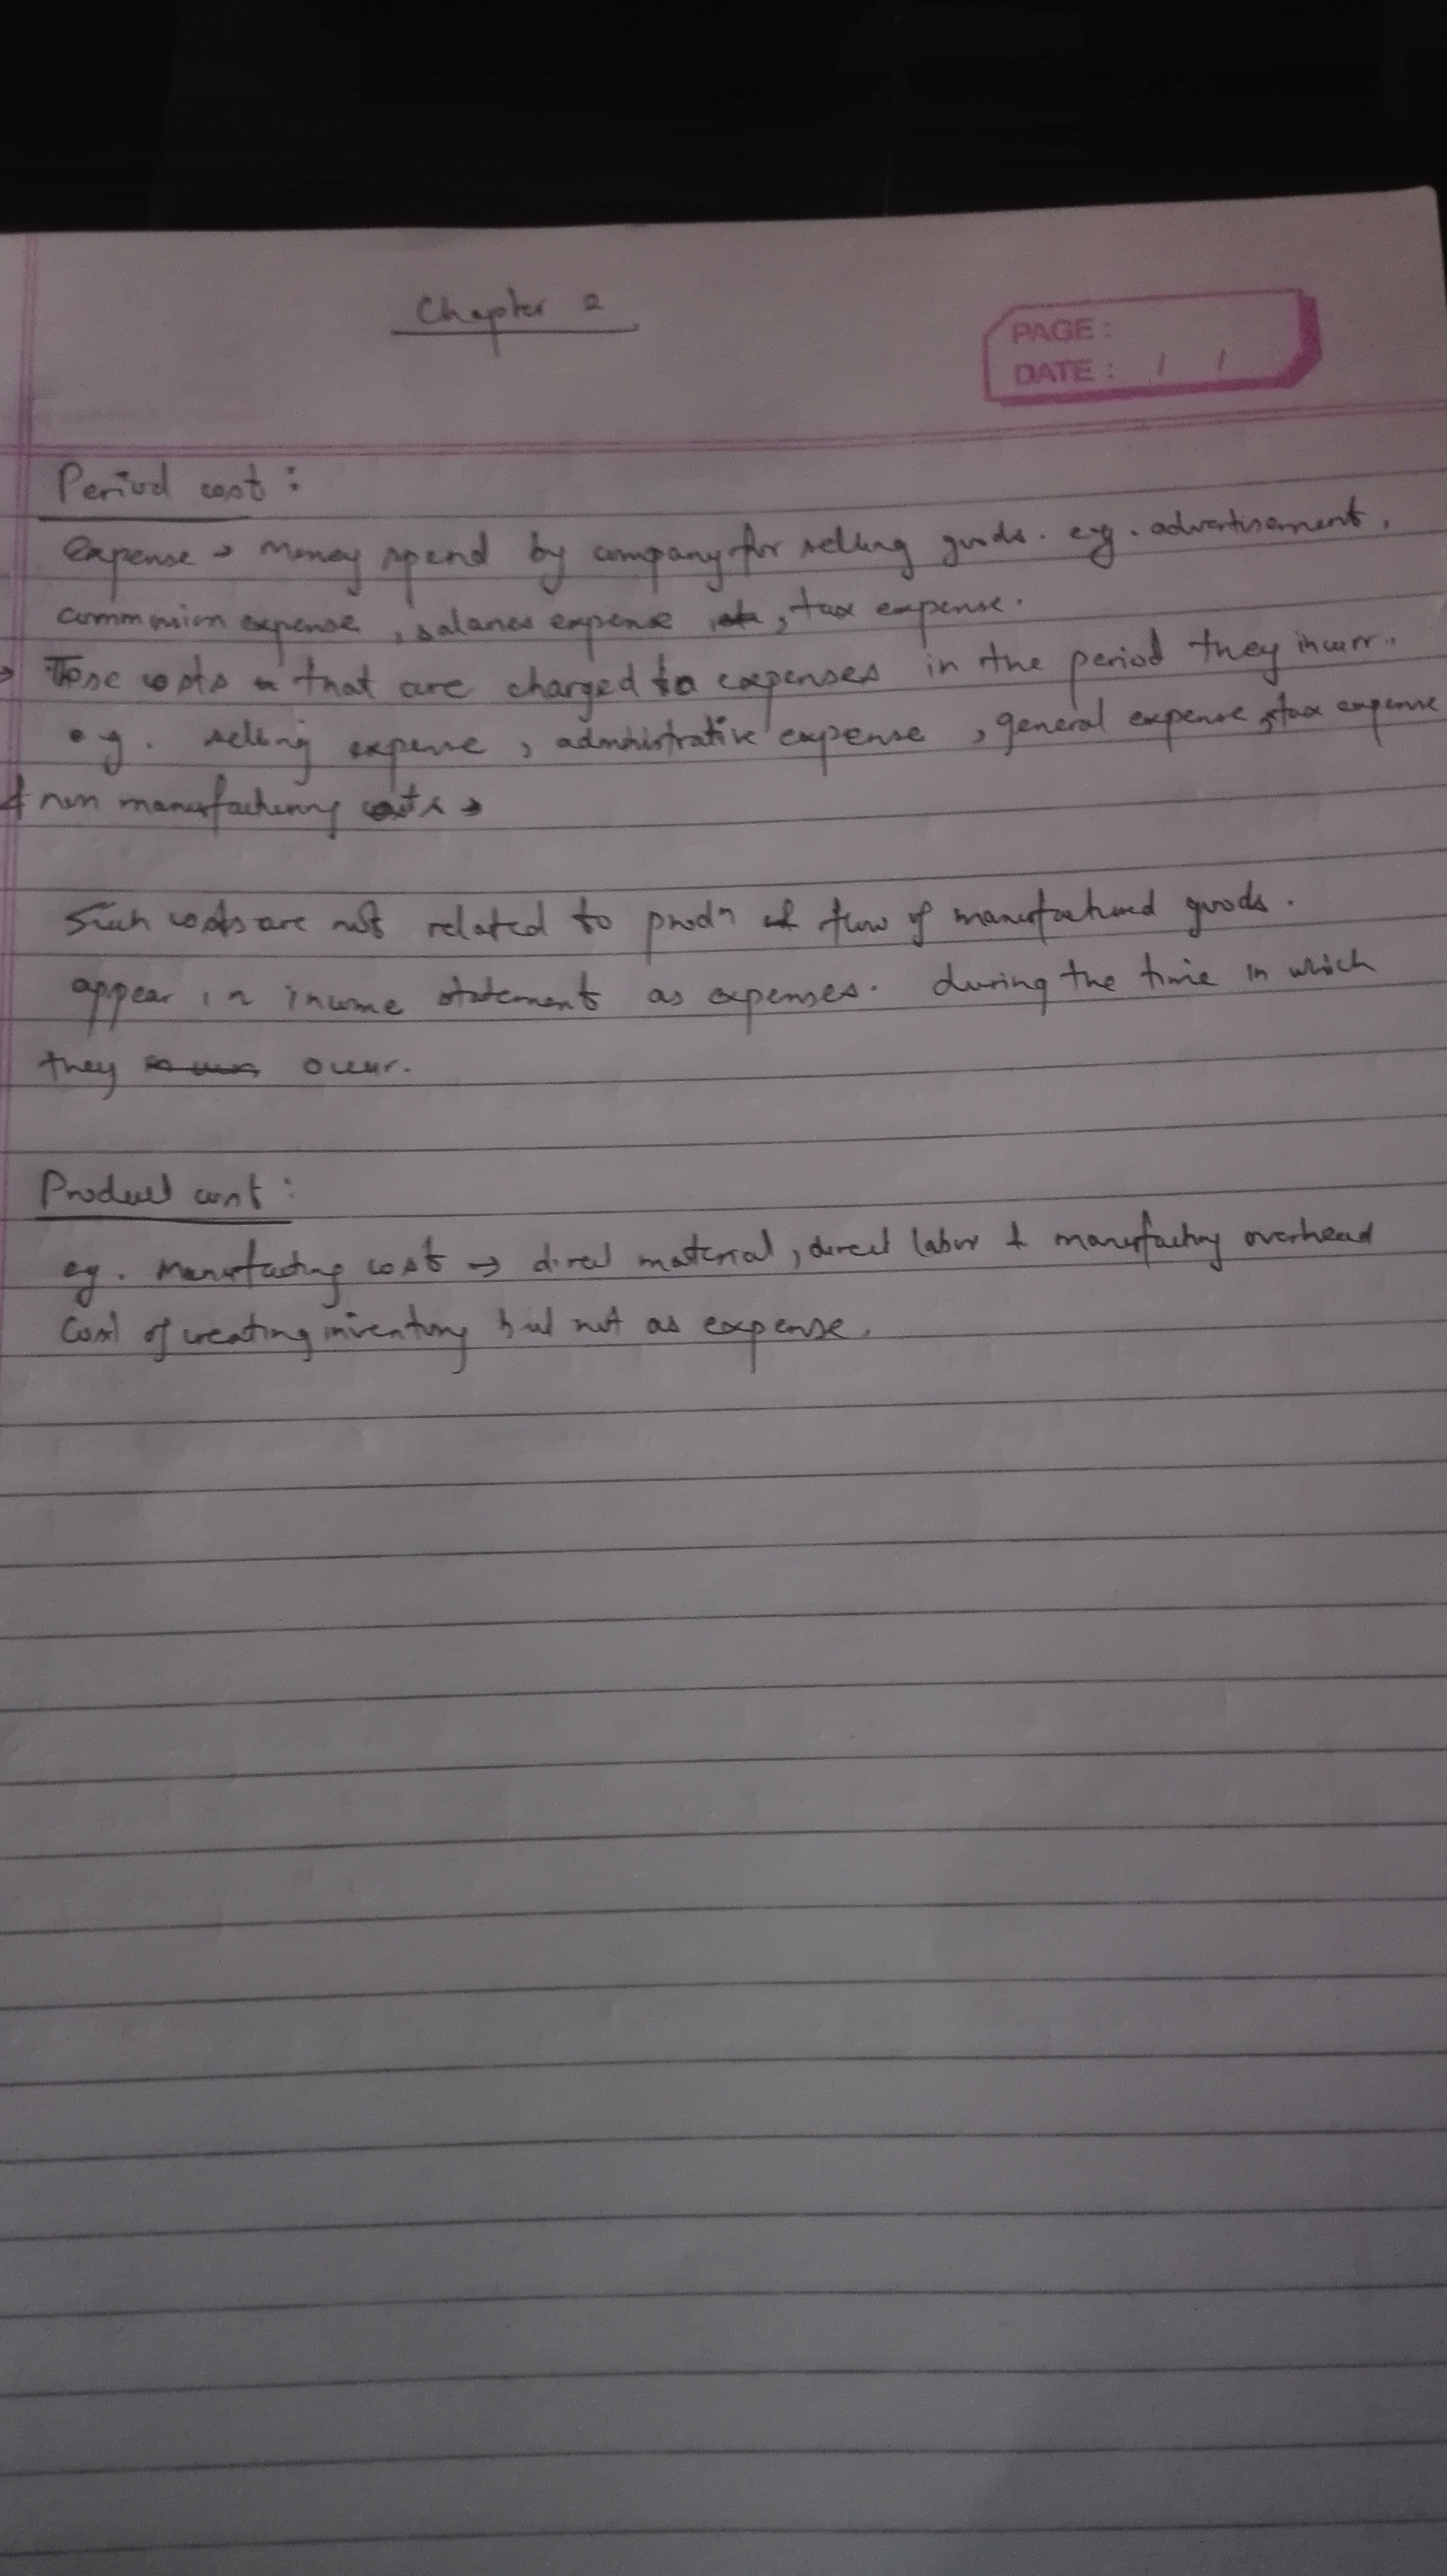 Chapter 2
PAGE :
DATE : / /
Period cost :
expense → Money spend by company for selling goods. eg. advertisement,
commission expense, salaries expense, tax expense.
→ Those costs that are charged to expenses in the period they incurr..
eg. selling expense, administrative expense, general expense, tax expense
& non manufacturing costs →
Such costs are not related to prodn flow of manufactured goods.
appear in income statement as expenses. during the time in which
they occur.
Product cost :
eg. Manufacting cost → direct material, direct labor & manufacting overhead
Cost of creating inventory but not as expense.